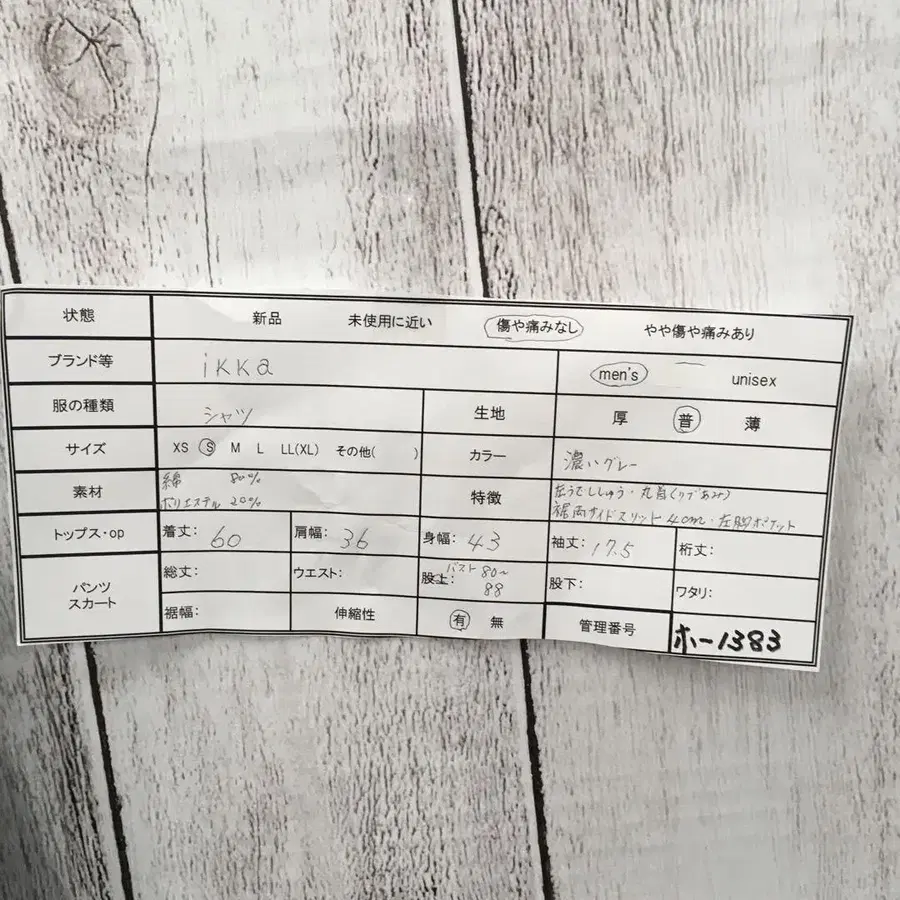 状態 新品 未使用に近い 傷や痛みなし やや傷や痛みあり
ブランド等 ikka men's unisex
服の種類 シャツ 生地 厚 普 薄
サイズ XS S M L LL(XL) その他( ) カラー 濃いグレー
素材 綿 80% 特徴 左うでししゅう・丸首(リブあみ)
ポリエステル 20% 裾両サイドスリット 4cm・左胸ポケット
トップス・op 着丈: 60 肩幅: 36 身幅: 43 袖丈: 17.5 裄丈:
パンツ スカート 総丈: ウエスト: 股上: バスト 80~88 股下: ワタリ:
裾幅: 伸縮性 有 無 管理番号 ホー1383